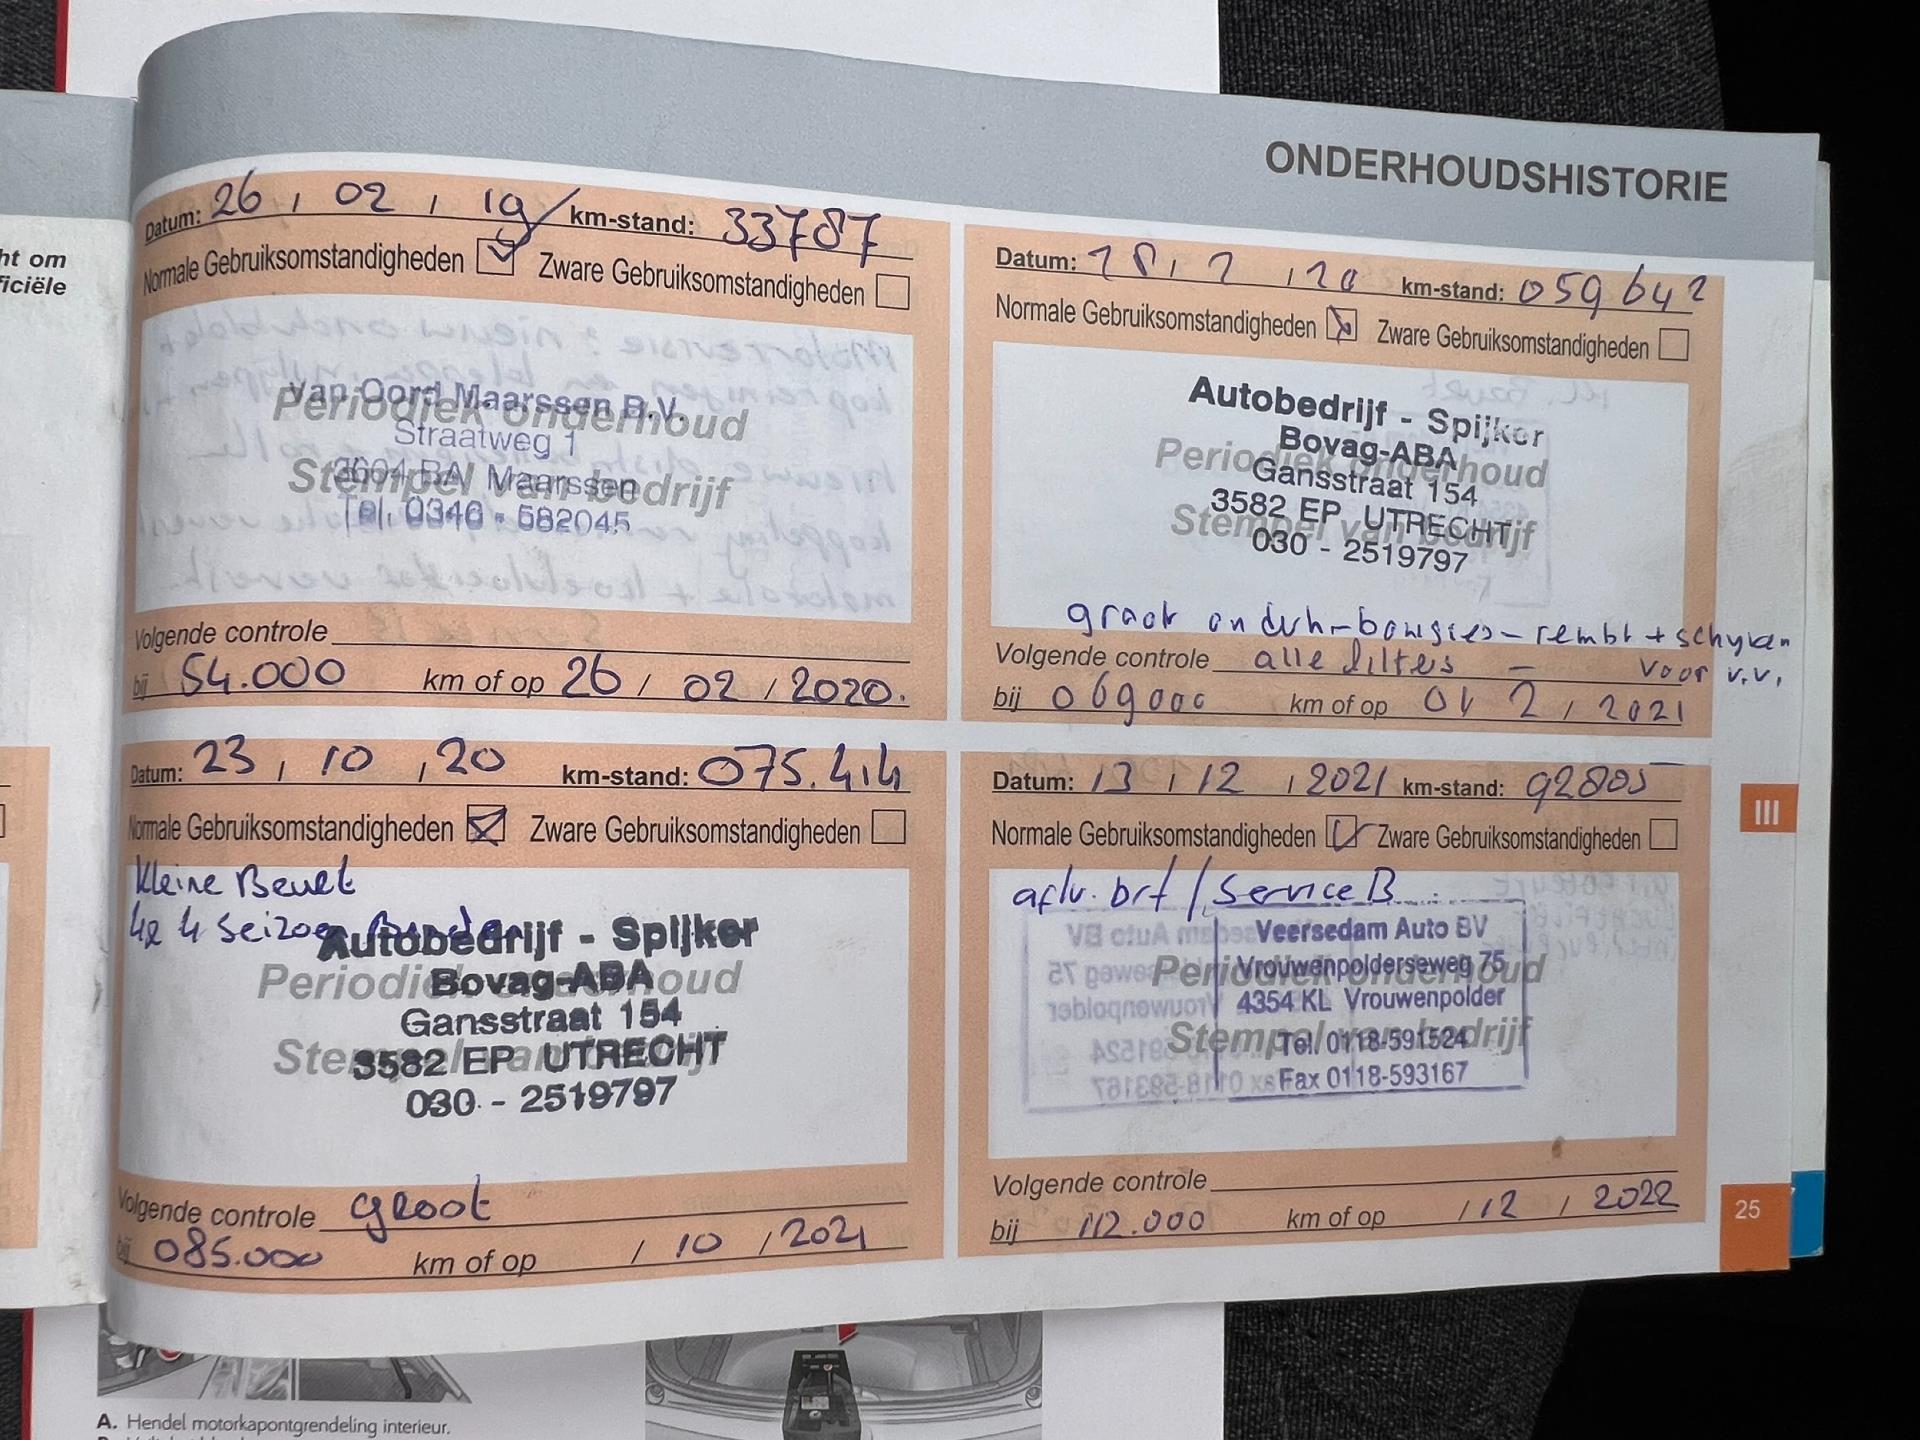 ONDERHOUDSHISTORIE
ht om
ficiële
Datum: 26 / 02 / 19 km-stand: 33787
Normale Gebruiksomstandigheden Zware Gebruiksomstandigheden
Periodiek onderhoud
Stempel van bedrijf
Van Oord Maarssen B.V.
Straatweg 1
3604 BA Maarssen
Tel. 0346 - 582045
Volgende controle
bij 54.000 km of op 26 / 02 / 2020.
Datum: 28 / 2 / 20 km-stand: 059642
Normale Gebruiksomstandigheden Zware Gebruiksomstandigheden
Periodiek onderhoud
Stempel van bedrijf
Autobedrijf - Spijker
Bovag-ABA
Gansstraat 154
3582 EP UTRECHT
030 - 2519797
groot onderh - bougies - rembl + schyven
Volgende controle alle filters - voor v.v.
bij 069000 km of op 01 / 2 / 2021
Datum: 23 / 10 / 20 km-stand: 075.414
Normale Gebruiksomstandigheden Zware Gebruiksomstandigheden
Kleine Beurt
4x 4 Seizoen Banden
Periodiek onderhoud
Stempel van bedrijf
Autobedrijf - Spijker
Bovag-ABA
Gansstraat 154
3582 EP UTRECHT
030 - 2519797
Volgende controle groot
bij 085.000 km of op / 10 / 2021
Datum: 13 / 12 / 2021 km-stand: 92805
Normale Gebruiksomstandigheden Zware Gebruiksomstandigheden
aflv. brf / Service B
Periodiek onderhoud
Stempel van bedrijf
Veersedam Auto BV
Vrouwenpolderseweg 75
4354 KL Vrouwenpolder
Tel. 0118-591524
Fax 0118-593167
Volgende controle
bij 112.000 km of op / 12 / 2022
III
25
A. Hendel motorkapontgrendeling interieur.